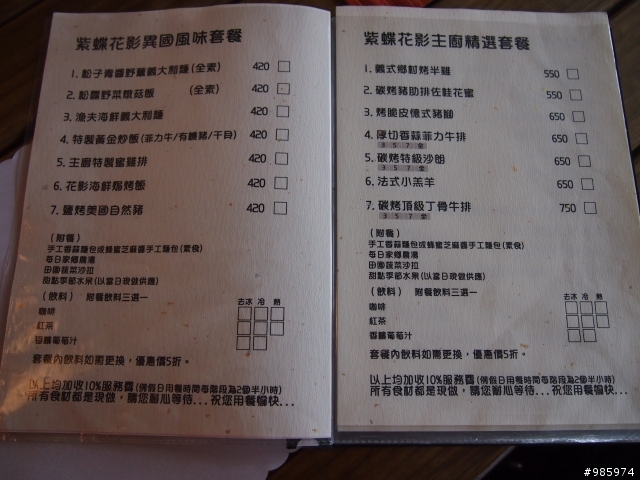 紫蝶花影異國風味套餐
1. 松子青醬野蕈義大利麵 (全素) 420
2. 松露野菜燉菇飯 (全素) 420
3. 漁夫海鮮義大利麵 420
4. 特製黃金炒飯 (菲力牛/有機豬/干貝) 420
5. 主廚特製蜜雞排 420
6. 花影海鮮焗烤飯 420
7. 鹽烤美國自然豬 420
(附餐)
手工香蒜麵包或蜂蜜芝麻醬手工麵包 (素食)
每日家鄉濃湯
田園蔬菜沙拉
甜點季節水果 (以當日現做供應)
(飲料) 附餐飲料三選一
去冰 冷 熱
咖啡
紅茶
香醇葡萄汁
套餐內飲料如需更換，優惠價5折。
以上均加收10%服務費 (例假日用餐時間每階段為2個半小時)
所有食材都是現做，請您耐心等待...祝您用餐愉快...
紫蝶花影主廚精選套餐
1. 義式鄉村烤半雞 550
2. 碳烤豬肋排佐桂花蜜 550
3. 烤脆皮德式豬腳 650
4. 厚切香蒜菲力牛排 650
3 5 7 全
5. 碳烤特級沙朗 650
3 5 7 全
6. 法式小羔羊 650
7. 碳烤頂級丁骨牛排 750
3 5 7 全
(附餐)
手工香蒜麵包或蜂蜜芝麻醬手工麵包 (素食)
每日家鄉濃湯
田園蔬菜沙拉
甜點季節水果 (以當日現做供應)
(飲料) 附餐飲料三選一
去冰 冷 熱
咖啡
紅茶
香醇葡萄汁
套餐內飲料如需更換，優惠價5折。
以上均加收10%服務費 (例假日用餐時間每階段為2個半小時)
所有食材都是現做，請您耐心等待...祝您用餐愉快...
#985974